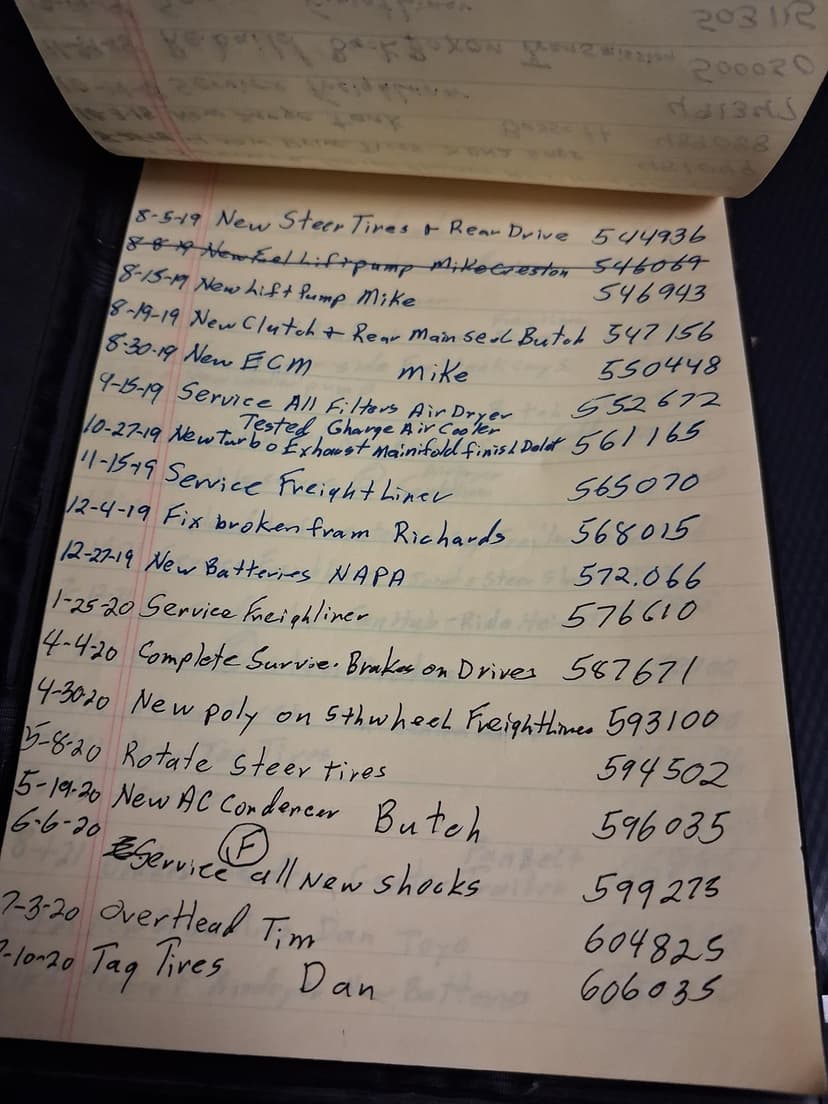 503115
500050
491347
8-5-19 New Steer Tires & Rear Drive 544936
8-8-19 New Fuel Lift pump Mike Creston 546069
8-15-19 New Lift Pump Mike 546943
8-19-19 New Clutch & Rear Main Seal Butch 547156
8-30-19 New ECM Mike 550448
9-15-19 Service All Filters Air Dryer 552672
Tested Charge Air Cooler
10-27-19 New Turbo Exhaust Mainifold finish 561165
11-15-19 Service Freight Liner 565070
12-4-19 Fix broken fram Richards 568015
12-27-19 New Batteries NAPA 572.066
1-25-20 Service Freighliner 576610
4-4-20 Complete Survie. Brakes on Drives 587671
4-30-20 New poly on 5thwheel 593100
5-8-20 Rotate Steer tires 594502
5-19-20 New AC Condencer Butch 596035
6-6-20
Service (F) all New Shocks 599273
7-3-20 OverHead Tim 604825
-10-20 Tag Tires Dan 606035